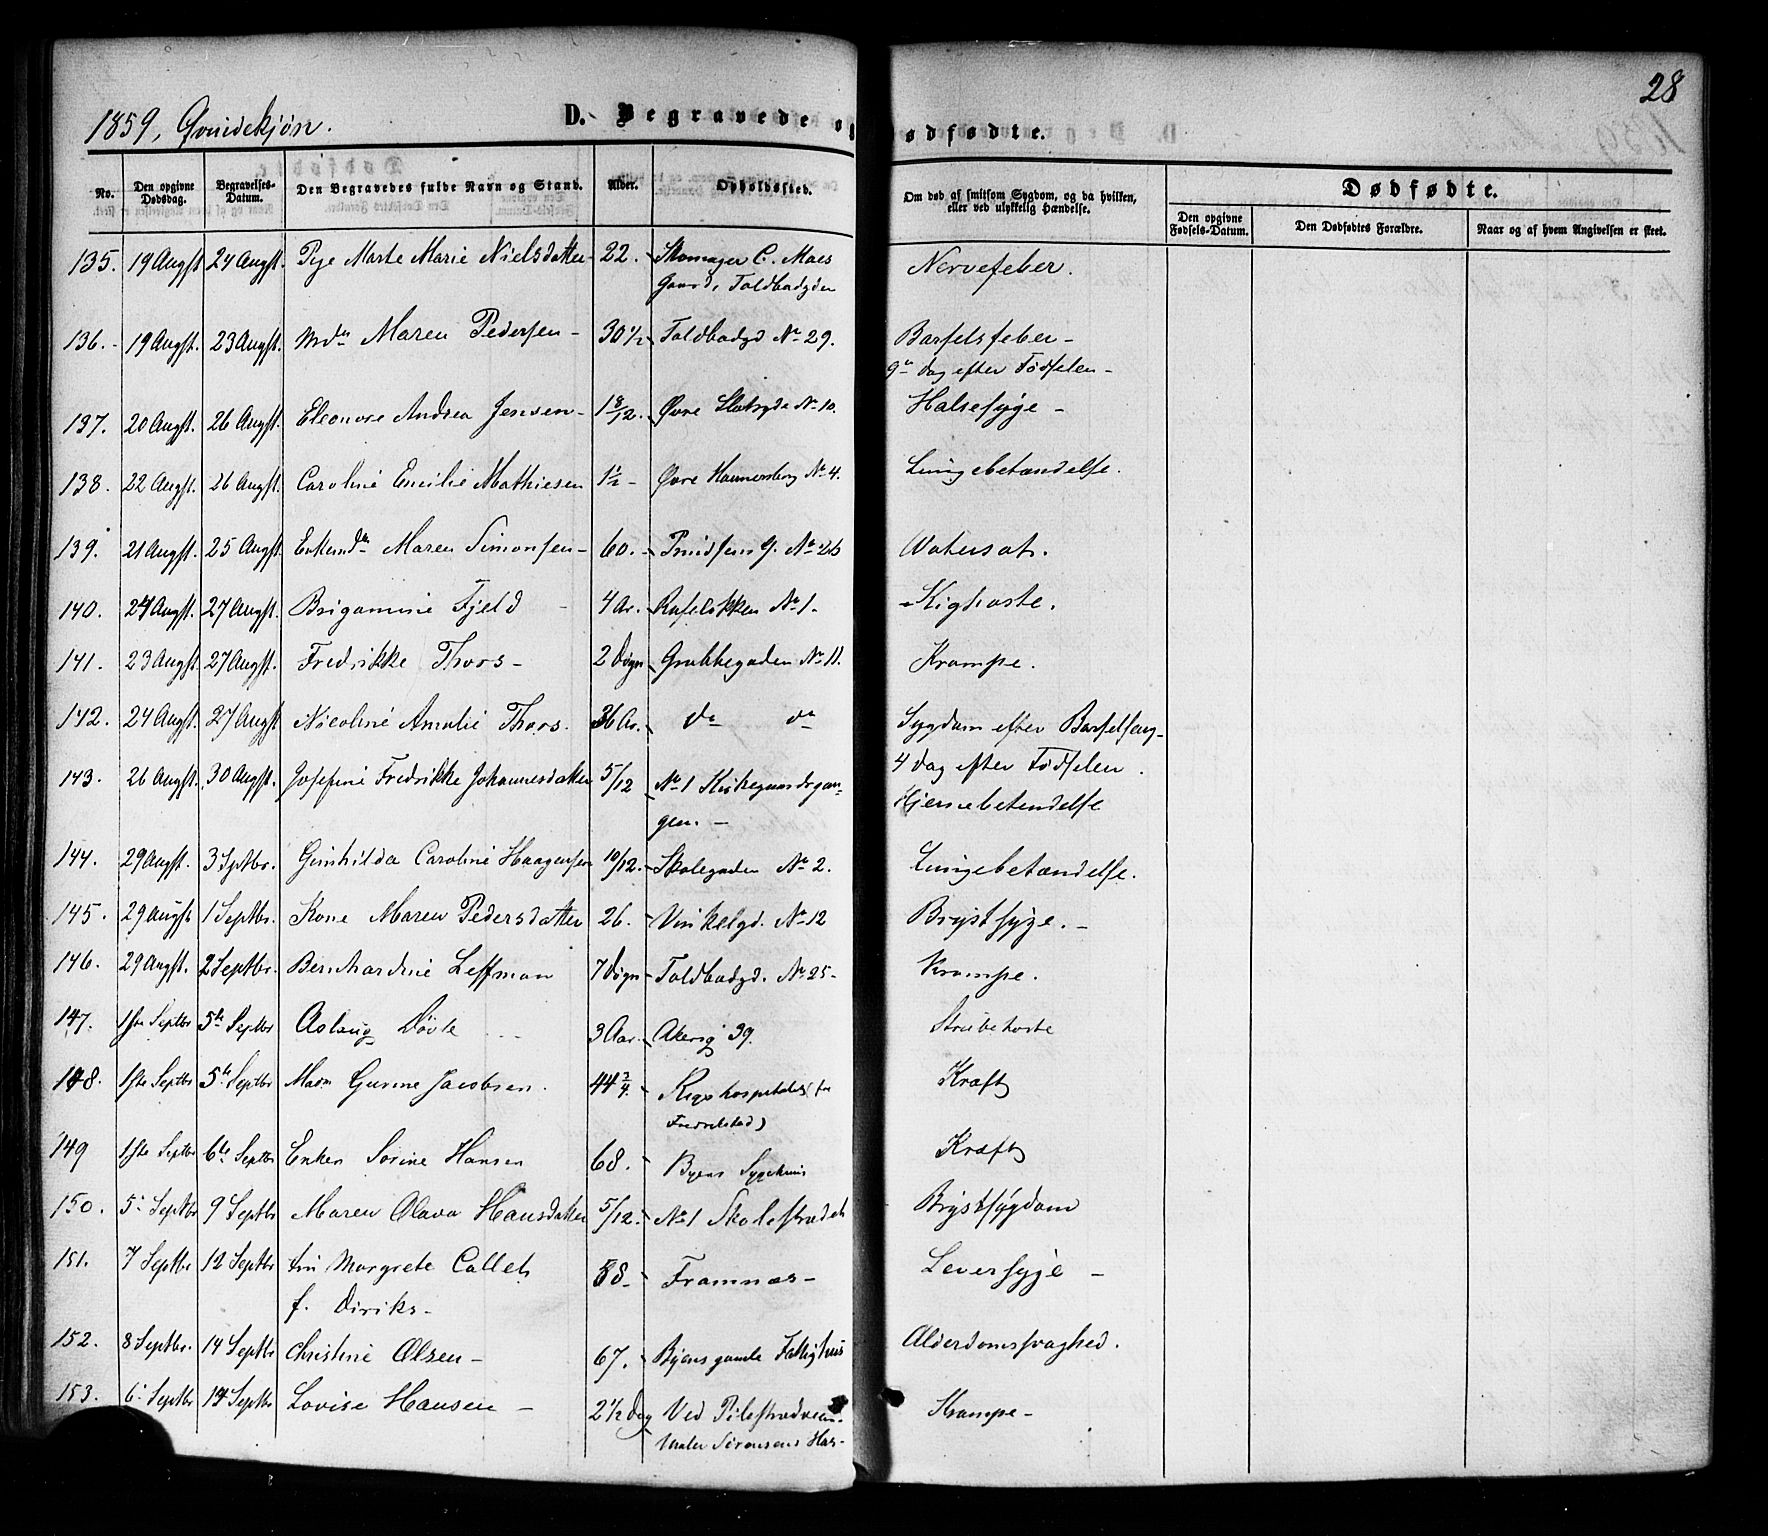 28
1859, Qvindekjøn.
D. Begravede og Dødfødte.
No. Den opgivne Dødsdag. Begravelses-Datum. Den Begravedes fulde Navn og Stand. Alder. Opholdssted. Om død af smitsom Sygdom, og da hvilken, eller ved ulykkelig Hændelse. Dødfødte.
Den opgivne Fødsels-Datum. Den Dødfødtes Forældre. Naar og af hvem Angivelsen er skeet.
135. 19 Augst 24 Augst. Pige Marte Marie Nielsdatter 22. Skomager C. Moes Nervefeber.
Gaard, Toldbodgden
136. 19 Augst. 23 Augst. Mdm Maren Pedersen 30 1/2 Toldbodgd No 29. Barselsfeber
9de Dag efter Fødselen
137. 20 Augst. 26 Augst. Eleonore Andrea Jensen 1 8/12. Øvre Slotsgde No 10. Halsesyge
138. 22 Augst. 26 Augst. Caroline Emilie Mathiesen 1 1/2 Øvre Hammersborg No 4. Lungebetændelse.
139. 21 Augst. 25 Augst. Enkemdm Maren Simonsen 60. No 26 Vatersot.
140. 24 Augst. 27 Augst. Brigamine Fjeld 4 Ar. Rufeløkken No 1. Kighoste.
141. 23 Augst. 27 Augst. Fredrikke Thors 2 Døgn Grubbegaden No 11. Krampe.
142. 24 Augst. 27 Augst. Nicoline Amalie Thors. 36 Ar. do do Sygdom efter Barselseng
4 Dag efter Fødselen.
143. 26 Augst. 30 Augst. Josefine Fredrikke Johannesdatter 5/12 No 1 Kirkegaardsgan- Hjernebetendelse
gen.
144. 29 Augst. 3 Septbr. Gunhilda Caroline Haagensen 10/12. Skolegaden No 2. Lungebetændelse.
145. 29 Augst 1 Septbr. Kone Maren Pedersdatter 26. Vinkelgd. No 12 Brystsyge.
146. 29 Augst. 2 Septbr. Bernhardine Leffman 7 Døgn Toldbodgd. No 25 Krampe.
147. 1ste Septbr 5te Septbr Aslaug Døvle 3 Aar. Akersg 39. Strubehoste
148. 1ste Septbr 5te Septbr Mdm Gurine Jacobsen. 44 3/4. Rigshospitalet (fra Kræft
Fredrikstad)
149 1ste Septbr 6te Septbr Enken Sorine Hansen 68. Byens Sygehuus Kræft
150. 5 Septbr 9 Septbr Maren Olava Hansdatter 5/12. No 1 Skolestrædet Brystsygdom
151. 7 Septbr 12 Septbr Fru Margrete Collett 58 Framnæs Leversyge
f. Diriks
152. 8 Septbr. 14 Septbr Christine Olsen 67. Byens gamle Fattighuus Alderdomssvaghed.
153. 6 Septbr 14 Septbr Lovise Hansen 2 1/2 Dag Ved Pilestrædveien Krampe
Maler Sørensens Hus